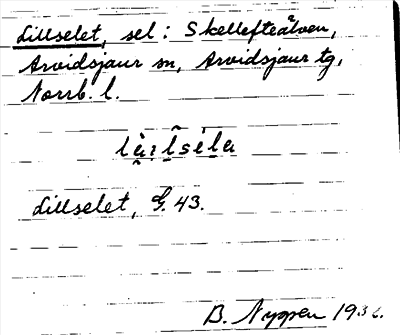 Lillselet, sel: Skellefteälven,
Arvidsjaur sn, Arvidsjaur tg,
Norrb. l.
Lillselet, G. 43.
B. Nyppen 1936.